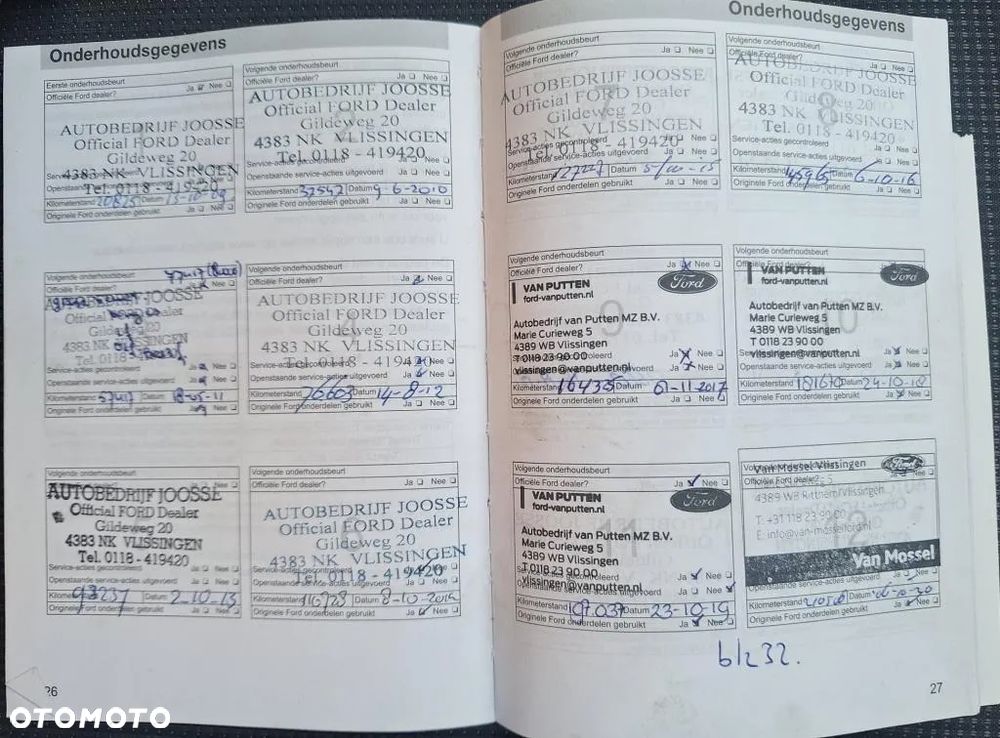 Onderhoudsgegevens
Eerste onderhoudsbeurt
Officiële Ford dealer? Ja Nee
AUTOBEDRIJF JOOSSE
Official FORD Dealer
Gildeweg 20
4383 NK VLISSINGEN
Openstaande
Tel. 0118 - 419420
Kilometerstand 20825 Datum 13-10-09
Originele Ford onderdelen gebruikt Ja Nee
Volgende onderhoudsbeurt
Officiële Ford dealer? Ja Nee
AUTOBEDRIJF JOOSSE
Official FORD Dealer
Gildeweg 20
4383 NK VLISSINGEN
Tel. 0118 - 419420
Service-acties gecontroleerd
Openstaande service-acties uitgevoerd Ja Nee
Kilometerstand 32547 Datum 9 6-2010
Originele Ford onderdelen gebruikt Ja Nee
Volgende onderhoudsbeurt
Officiële Ford dealer? Nee
JOOSSE
Official
Gildeweg
4383 NK
Tel. 0118
Service-acties gecontroleerd Ja Nee
Openstaande service-acties uitgevoerd Ja Nee
Kilometerstand 57417 Datum 18-05-11
Originele Ford onderdelen gebruikt Ja Nee
Volgende onderhoudsbeurt
Officiële Ford dealer? Ja Nee
AUTOBEDRIJF JOOSSE
Official FORD Dealer
Gildeweg 20
4383 NK VLISSINGEN
Tel. 0118 - 419420
Service-acties gecontroleerd Ja Nee
Openstaande service-acties uitgevoerd Ja Nee
Kilometerstand 76603 Datum 14-8-12
Originele Ford onderdelen gebruikt Ja Nee
Volgende onderhoudsbeurt
AUTOBEDRIJF JOOSSE
Official FORD Dealer
Gildeweg 20
4383 NK VLISSINGEN
Tel. 0118 - 419420
Service-acties gecontroleerd
Openstaande service-acties uitgevoerd Ja Nee
Kilometerstand 93237 Datum 2-10-13
Originele Ford onderdelen gebruikt Ja Nee
Volgende onderhoudsbeurt
Officiële Ford dealer? Ja Nee
AUTOBEDRIJF JOOSSE
Official FORD Dealer
Gildeweg 20
4383 NK VLISSINGEN
Service-acties gecontroleerd
Tel. 0118 - 419420
Openstaande service-acties uitgevoerd Ja Nee
Kilometerstand 116728 Datum 8-10-2014
Originele Ford onderdelen gebruikt Ja Nee
26
Onderhoudsgegevens
Volgende onderhoudsbeurt
Officiële Ford dealer? Ja Nee
AUTOBEDRIJF JOOSSE
Official FORD Dealer
Gildeweg 20
4383 NK VLISSINGEN
Service-acties gecontroleerd
Tel. 0118 - 419420
Openstaande service-acties uitgevoerd Ja Nee
Kilometerstand Datum 5/10-15
Originele Ford onderdelen gebruikt Ja Nee
Volgende onderhoudsbeurt
Officiële Ford dealer? Ja Nee
AUTOBEDRIJF JOOSSE
Official FORD Dealer
8
Gildeweg 20
4383 NK VLISSINGEN
Tel. 0118 - 419420
Service-acties gecontroleerd
Openstaande service-acties uitgevoerd Ja Nee
Kilometerstand Datum 6-10-16
Originele Ford onderdelen gebruikt Ja Nee
Volgende onderhoudsbeurt
Officiële Ford dealer? Ja Nee
VAN PUTTEN
ford-vanputten.nl
Ford
Autobedrijf van Putten MZ B.V.
Marie Curieweg 5
4389 WB Vlissingen
T 0118 23 90 00
vlissingen@vanputten.nl
Ja Nee
Ja Nee
Kilometerstand 16435 Datum 01-11-2017
Originele Ford onderdelen gebruikt Ja Nee
Volgende onderhoudsbeurt
Officiële Ford dealer?
VAN PUTTEN
ford-vanputten.nl
Ford
Autobedrijf van Putten MZ B.V.
Marie Curieweg 5
4389 WB Vlissingen
T 0118 23 90 00
vlissingen@vanputten.nl
Ja Nee
Ja Nee
Kilometerstand Datum 24-10-18
Originele Ford onderdelen gebruikt Ja Nee
Volgende onderhoudsbeurt
Officiële Ford dealer? Ja Nee
VAN PUTTEN
ford-vanputten.nl
Ford
Autobedrijf van Putten MZ B.V.
Marie Curieweg 5
4389 WB Vlissingen
T 0118 23 90 00
vlissingen@vanputten.nl
Ja Nee
Ja Nee
Kilometerstand Datum 23-10-19
Originele Ford onderdelen gebruikt Ja Nee
Van Mossel Vlissingen
Officiële Ford dealer?
4389 WB Ritthem/Vlissingen
T: +31 118 23 90 00
E: info@van-mosselford.nl
Van Mossel
Openstaande service-acties uitgevoerd Ja Nee
Kilometerstand Datum
Originele Ford onderdelen gebruikt Ja Nee
27
OTOMOTO